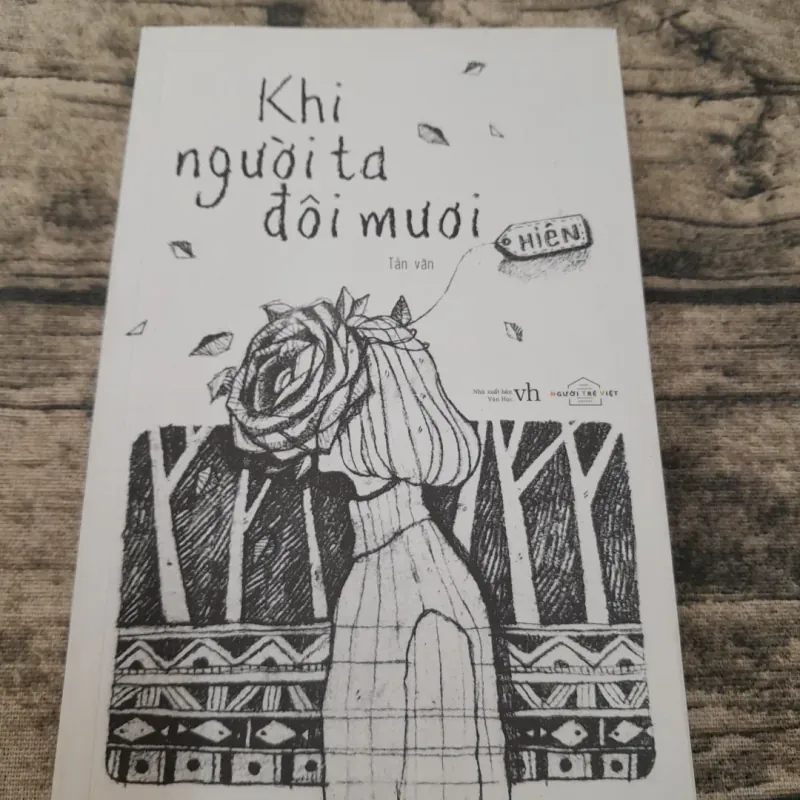 Khi
người ta
đôi mươi
HIÊN
Tản văn
Nhà xuất bản
Văn Học
vh
NGƯỜI TRẺ VIỆT